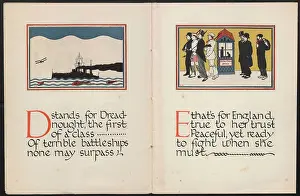 D stands for Dread-
nought, the first
of a class
Of terrible battleships
none may surpass
E that's for England,
true to her trust
Peaceful, yet ready
to fight when she
must